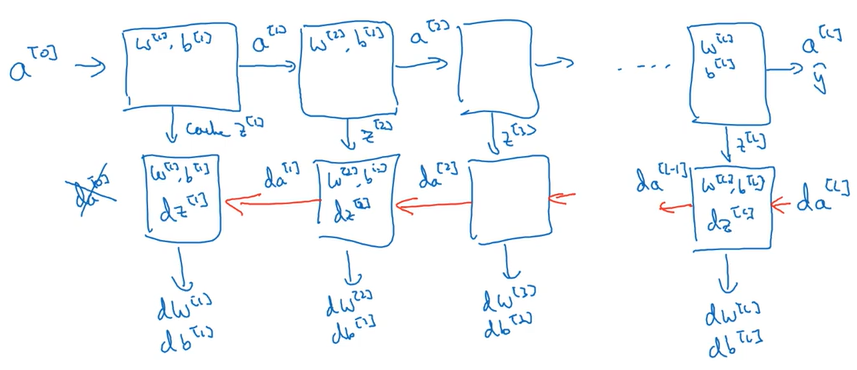 a^[0] → w^[1], b^[1] a^[1] w^[2], b^[2] a^[2] .... w^[L] b^[L] a^[L] ŷ
cache z^[1] z^[2] z^[3] z^[L]
da^[0] w^[1], b^[1] dz^[1] da^[1] w^[2], b^[2] dz^[2] da^[2] da^[L-1] w^[L], b^[L] dz^[L] da^[L]
dw^[1] dw^[2] dw^[3] dw^[L]
db^[1] db^[2] db^[3] db^[L]